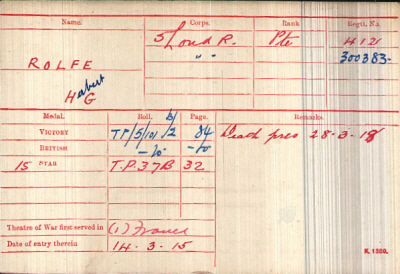 Name. Corps. Rank Regtl. No.
ROLFE 5 Lond R. Pte 4121
Herbert G " " 300383-
Medal. Roll. B/ Page. Remarks.
VICTORY TP/5/101 B/2 84 Death pres 28-3-18
BRITISH -do- -do-
15 STAR T.P. 37B 32
Theatre of War first served in (1) France
Date of entry therein 14-3-15
K. 1380.